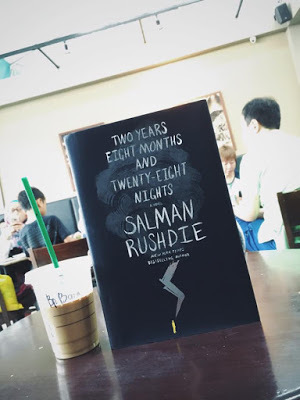 TWO YEARS
EIGHT MONTHS
AND
TWENTY-EIGHT
NIGHTS
A NOVEL
SALMAN
RUSHDIE
NEW YORK TIMES
BESTSELLING AUTHOR